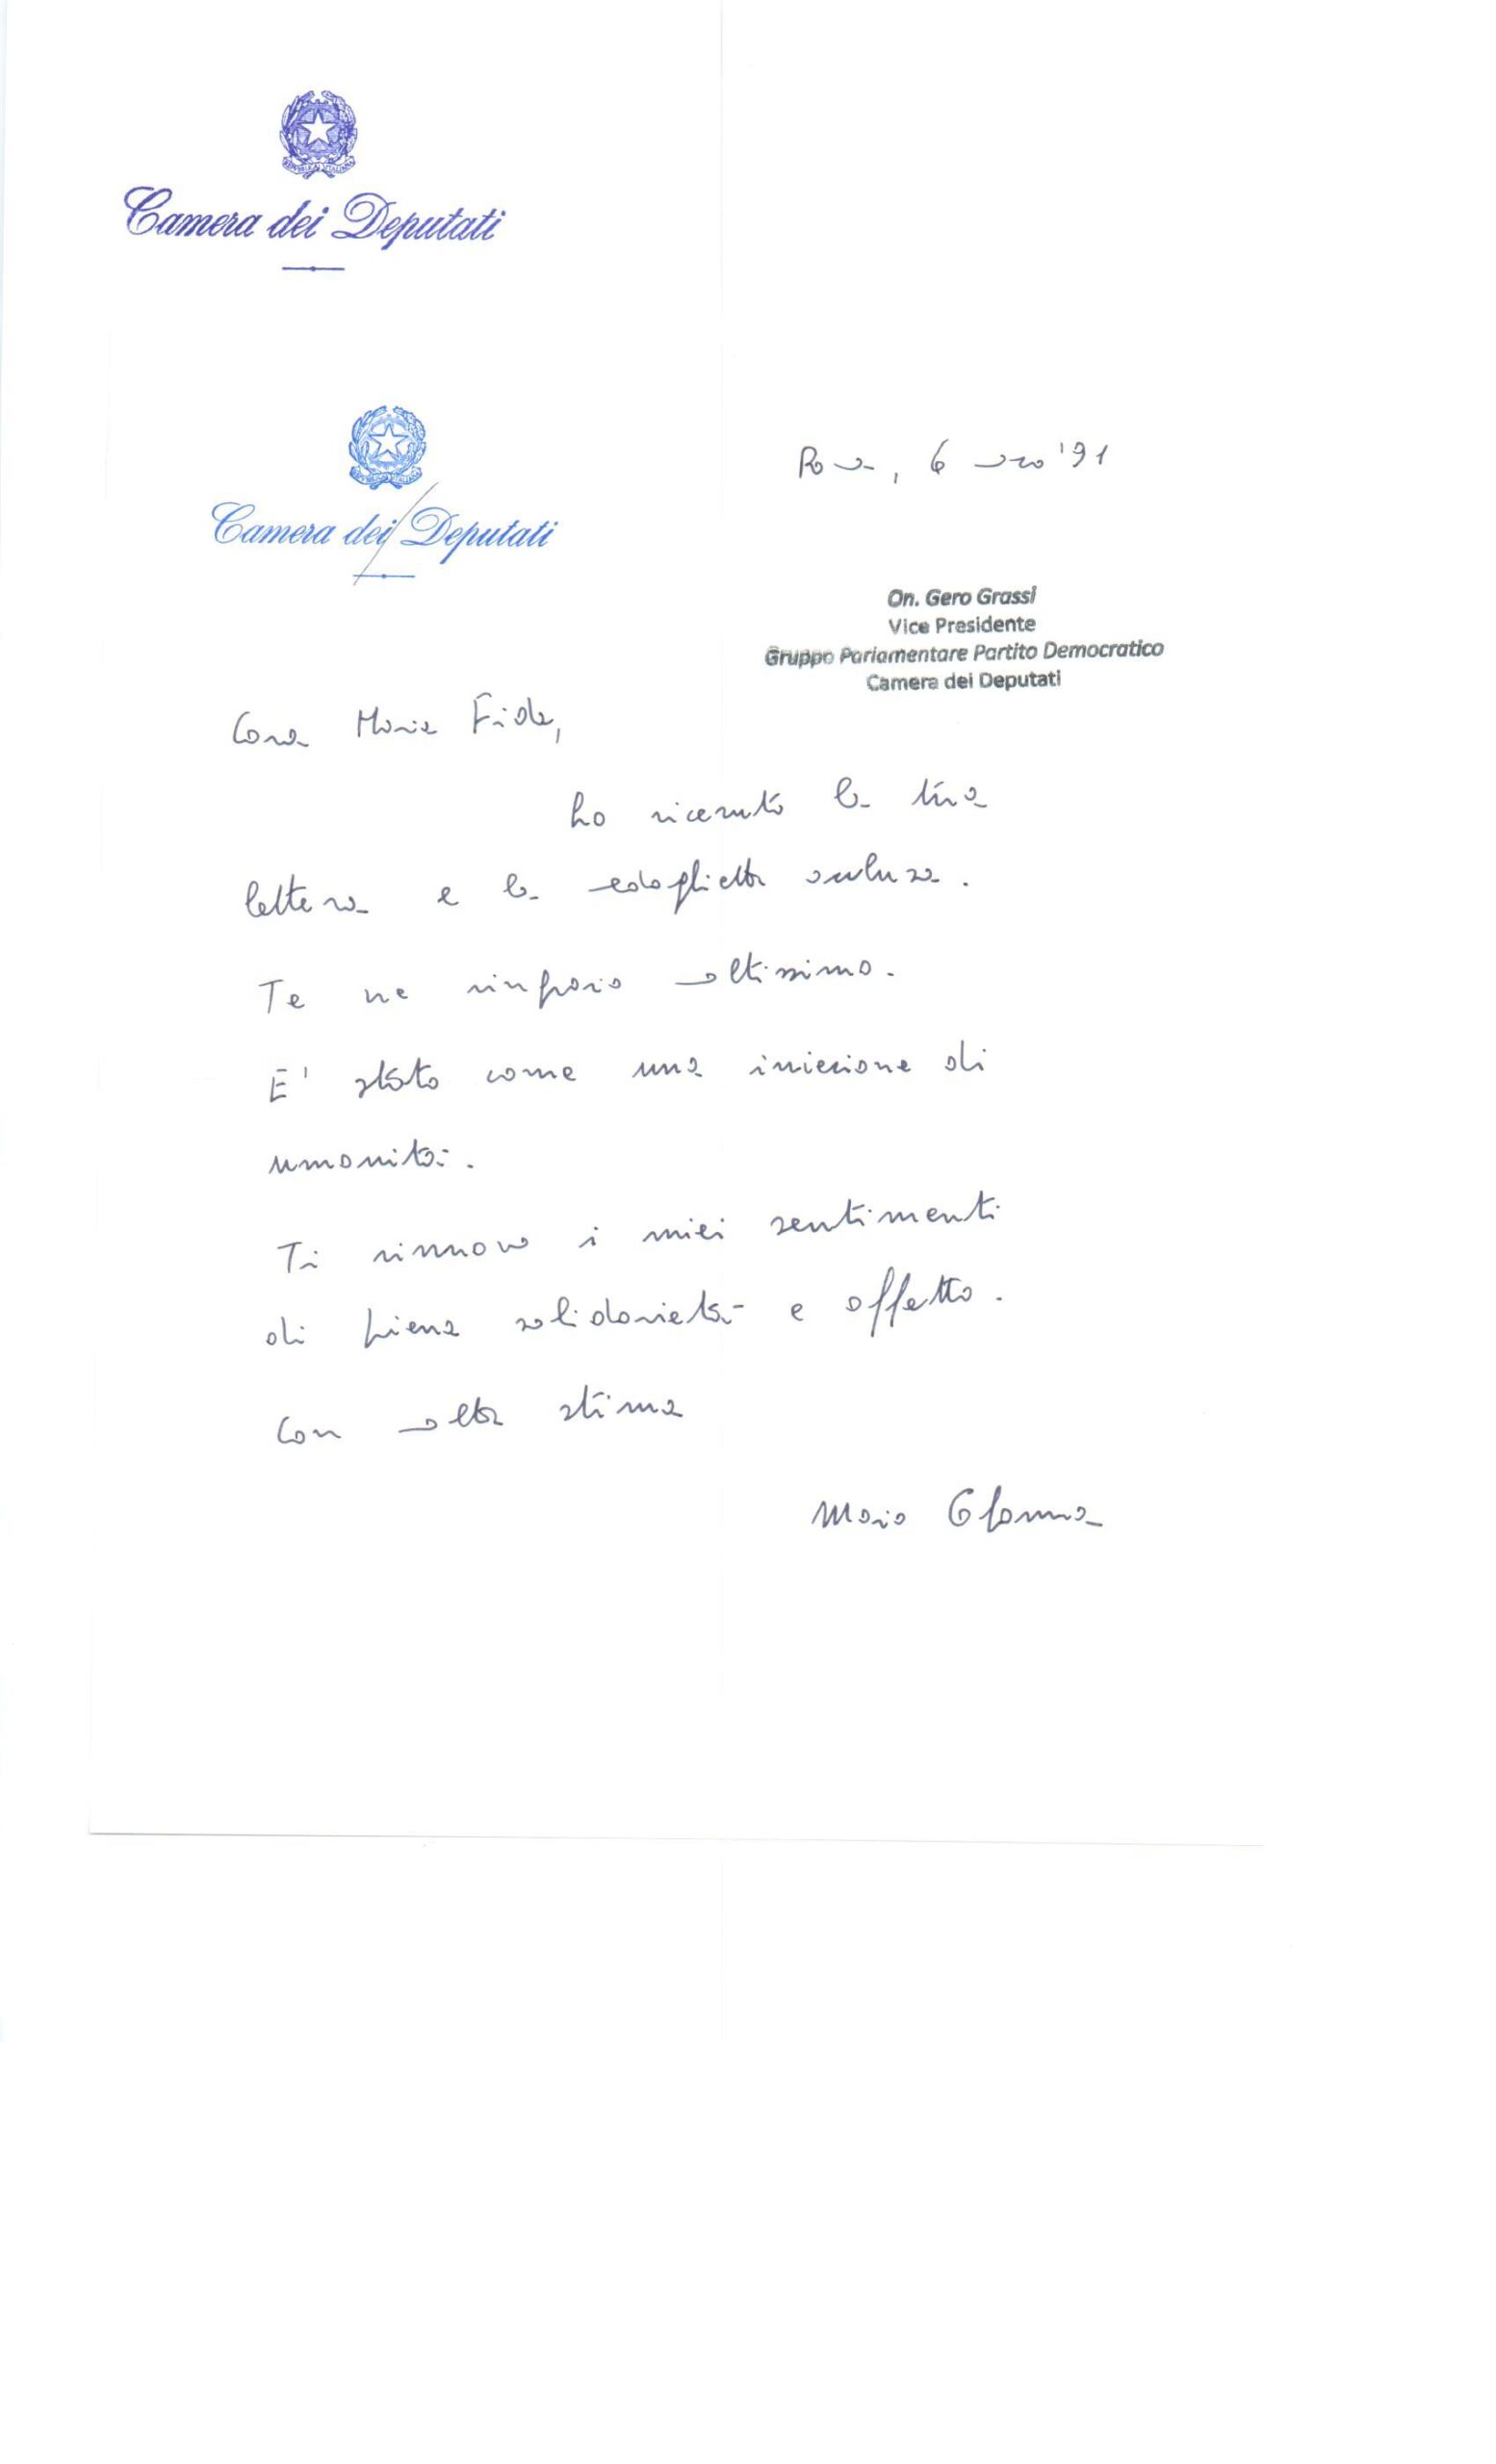 REPUBBLICA ITALIANA
Camera dei Deputati
REPUBBLICA ITALIANA
Camera dei Deputati
Roma, 6 marzo '91
On. Gero Grassi
Vice Presidente
Gruppo Parlamentare Partito Democratico
Camera dei Deputati
Cara Maria Fida,
ho ricevuto la tua
lettera e la medaglietta acclusa.
Te ne ringrazio moltissimo.
E' stato come una iniezione di
umanità.
Ti rinnovo i miei sentimenti
di piena solidarietà e affetto.
Con molta stima
Colonna